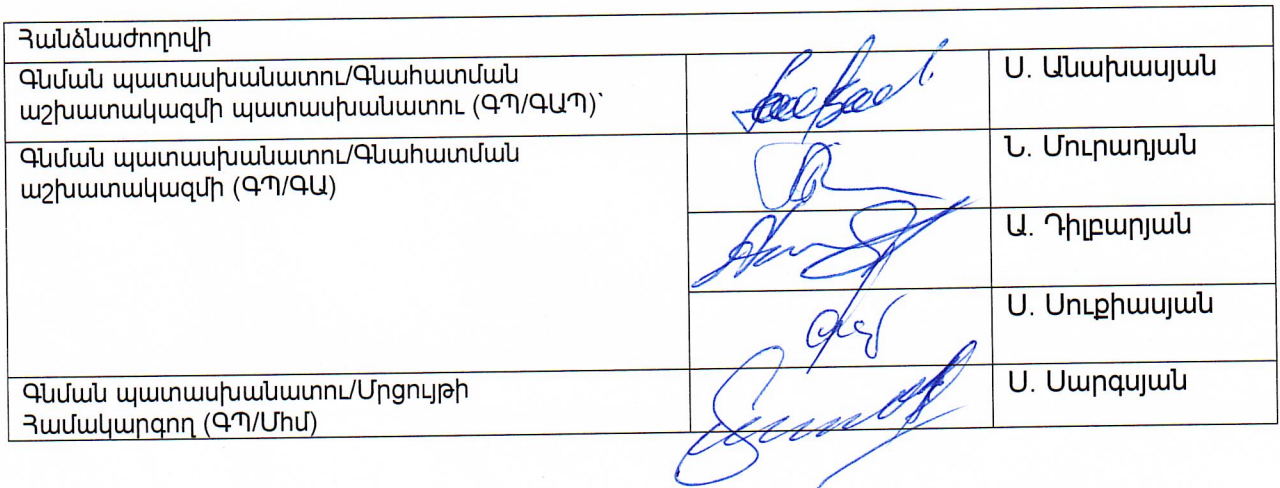 Հանձնաժողովի
Գնման պատասխանատու/Գնահատման
աշխատակազմի պատասխանատու (ԳՊ/ԳԱՊ)՝
Ս. Անախասյան
Գնման պատասխանատու/Գնահատման
աշխատակազմի (ԳՊ/ԳԱ)
Ն. Մուրադյան
Ա. Դիլբարյան
Ս. Սուքիասյան
Գնման պատասխանատու/Մրցույթի
Համակարգող (ԳՊ/Միմ)
Ս. Սարգսյան